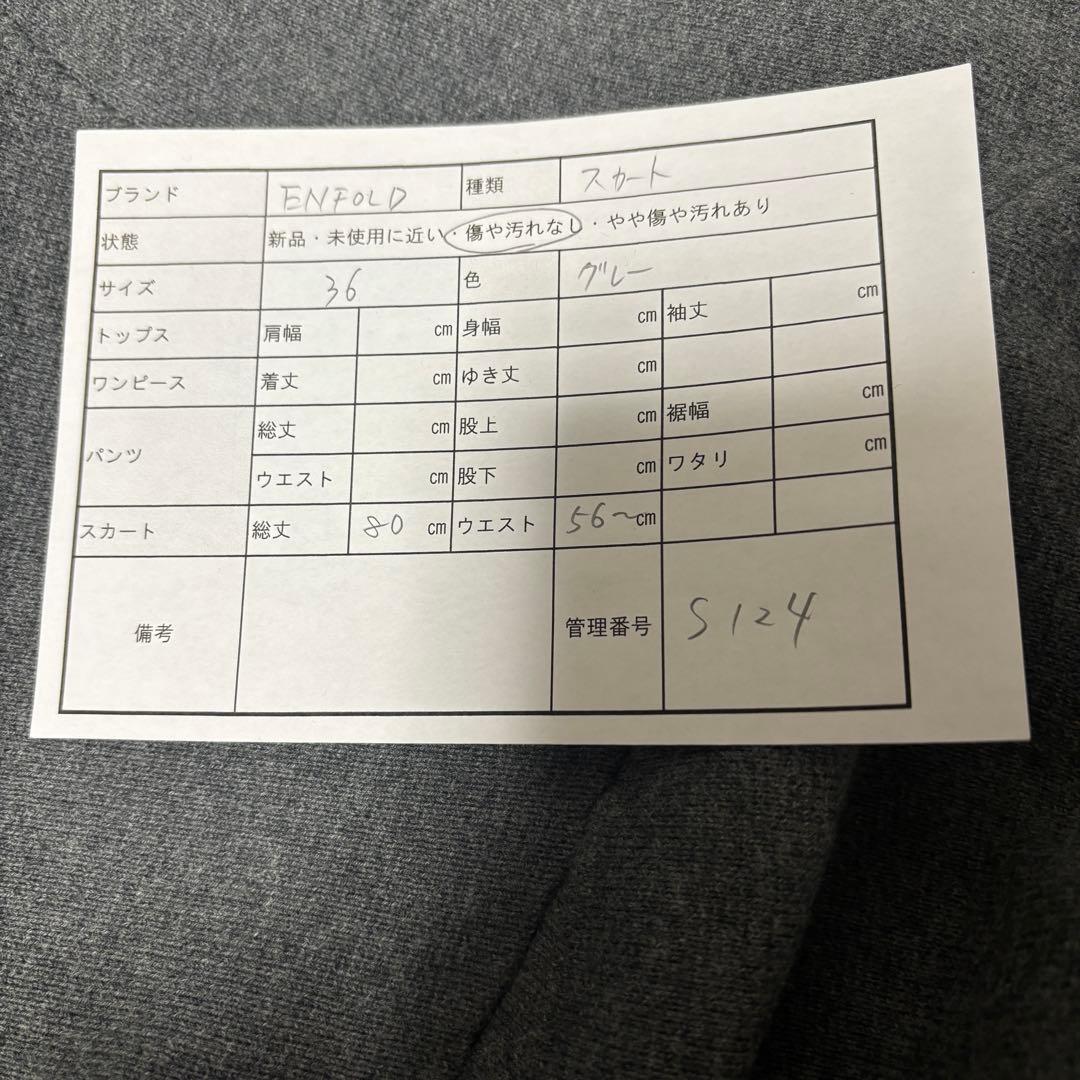 ブランド ENFOLD 種類 スカート
状態 新品・未使用に近い・傷や汚れなし・やや傷や汚れあり
サイズ 36 色 グレー
トップス 肩幅 cm 身幅 cm 袖丈 cm
ワンピース 着丈 cm ゆき丈 cm
パンツ 総丈 cm 股上 cm 裾幅 cm
ウエスト cm 股下 cm ワタリ cm
スカート 総丈 80 cm ウエスト 56〜cm
備考 管理番号 S124